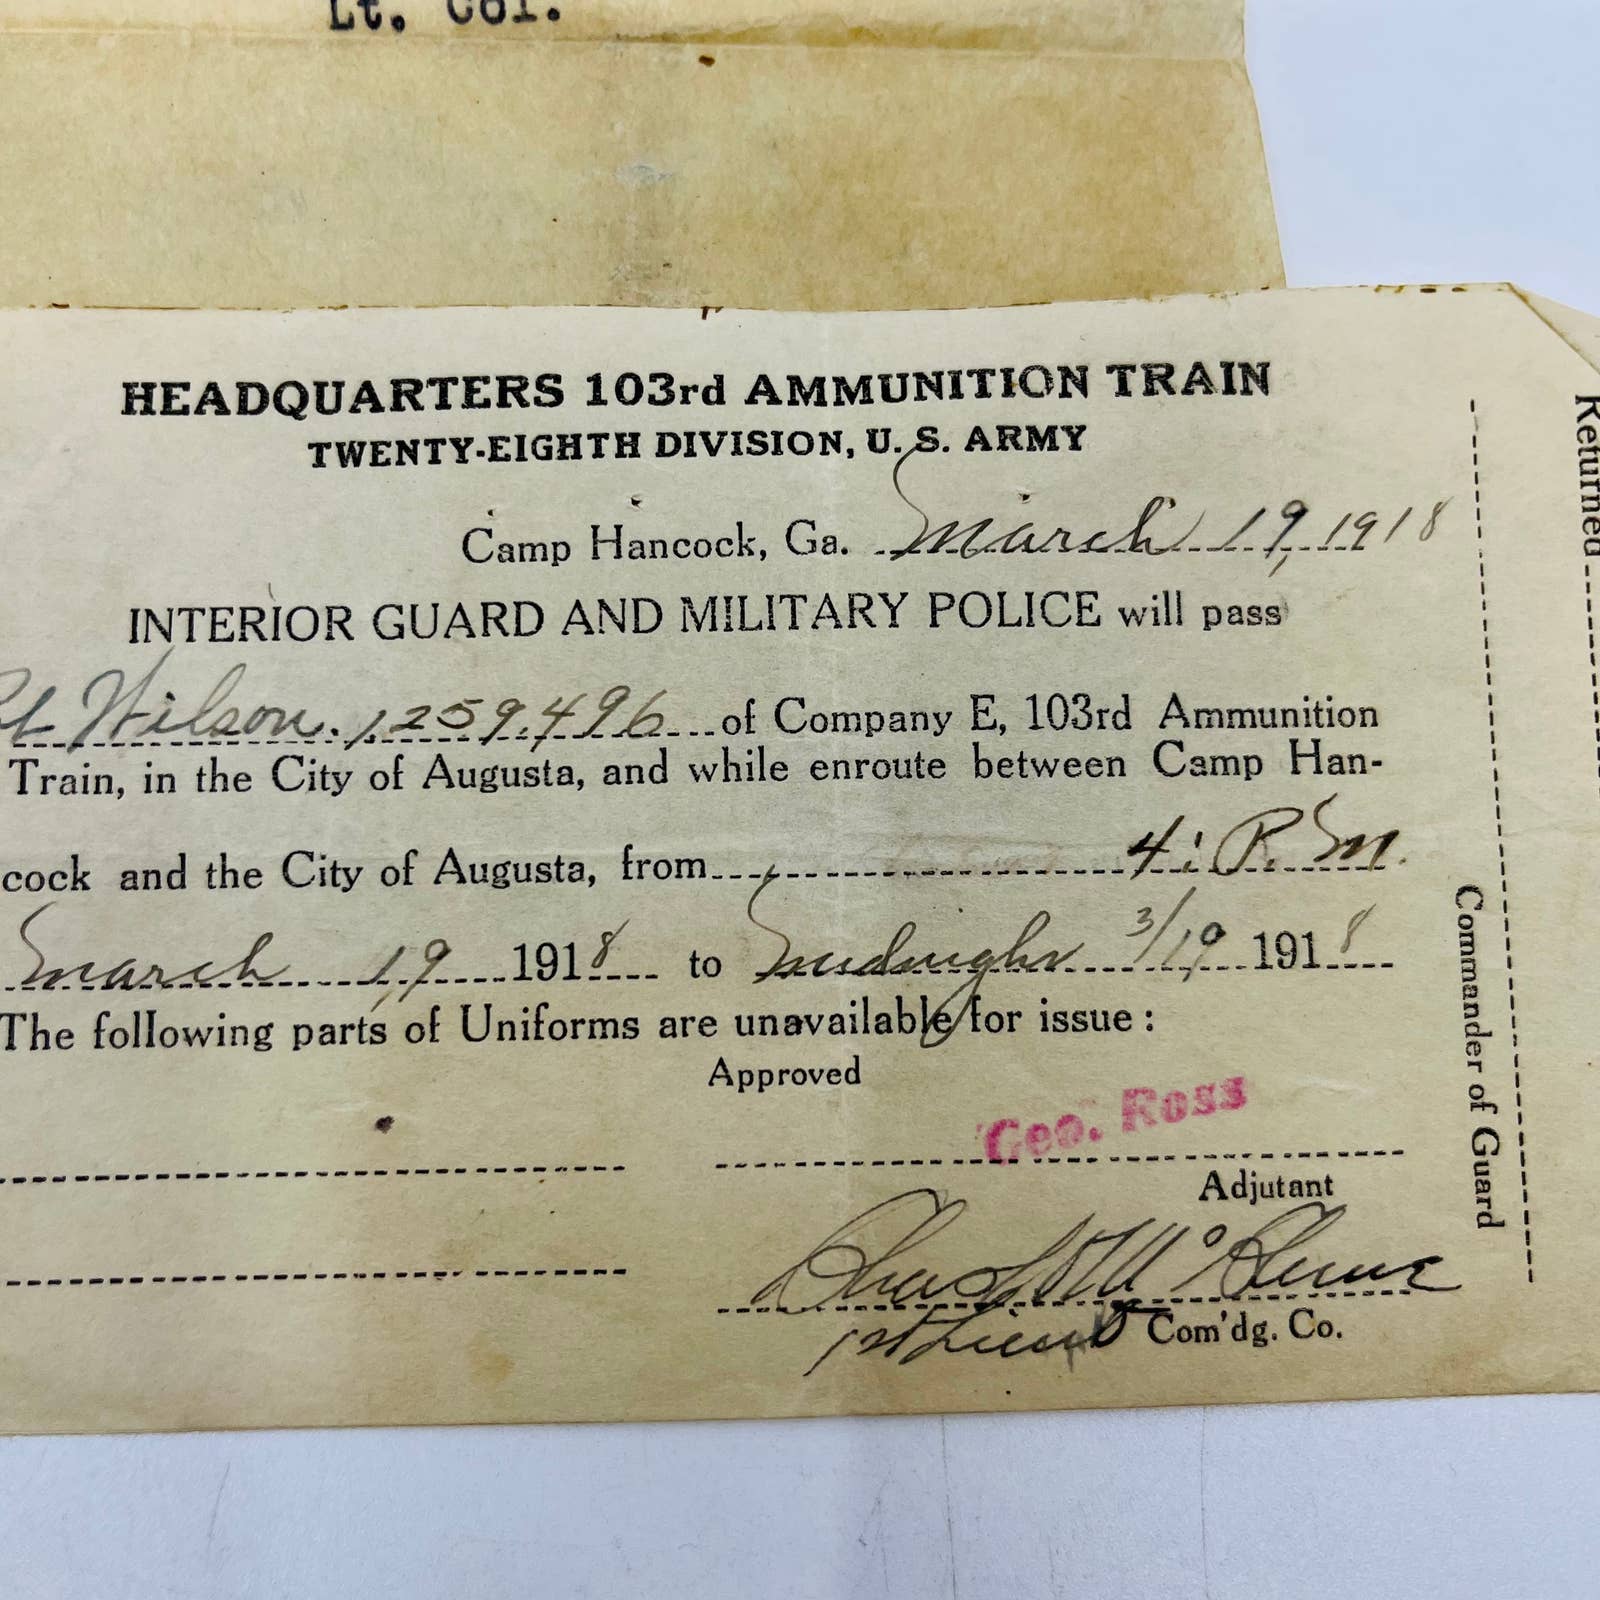 Lt. Col.
HEADQUARTERS 103rd AMMUNITION TRAIN
TWENTY-EIGHTH DIVISION, U. S. ARMY
Camp Hancock, Ga. March 19, 1918
INTERIOR GUARD AND MILITARY POLICE will pass
Wilson. 1259.496 of Company E, 103rd Ammunition
Train, in the City of Augusta, and while enroute between Camp Han-
cock and the City of Augusta, from 4: P. M.
March 19, 1918 to Midnight 3/19, 1918
The following parts of Uniforms are unavailable for issue:
Approved
Geo. Ross
Adjutant
Chas
1st Lieut Com'dg. Co.
Commander of Guard
Returned